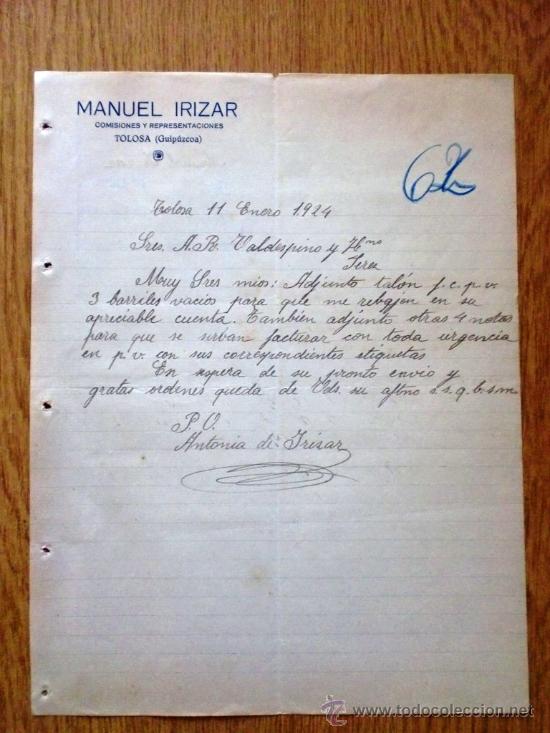 MANUEL IRIZAR
COMISIONES Y REPRESENTACIONES
TOLOSA (Guipúzcoa)
Tolosa 11 Enero 1924
Sres. A.R. Valdespino y Hmo
Jerez
Muy Sres mios: Adjunto talón f.c.p.v.
3 barriles vacios para que me rebajen en su
apreciable cuenta. Tambien adjunto otras 4 notas
para que se sirban facturar con toda urgencia
en p.v. con sus correspondientes etiquetas
En espera de su pronto envio y
gratas ordenes queda de Vds. su aftmo s.s.q.b.s.m.
P.O.
Antonia de Irizar
todocoleccion
www.todocoleccion.net